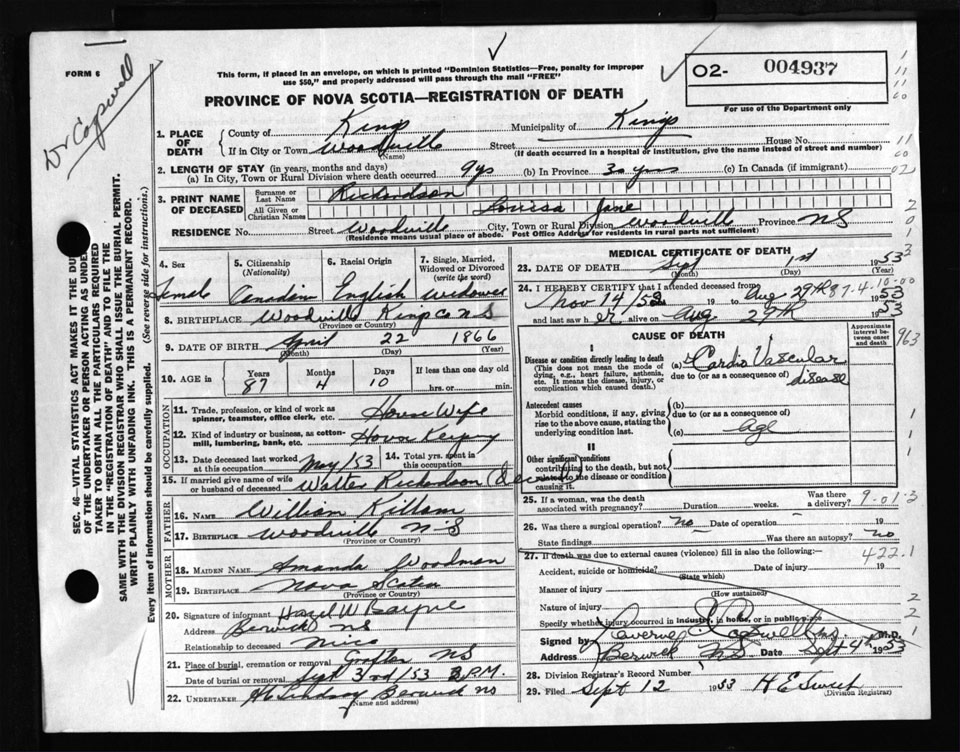 FORM 6
Dr Cogswell
This form, if placed in an envelope, on which is printed "Dominion Statistics—Free, penalty for improper
use $50," and properly addressed will pass through the mail "FREE"
O2- 004937
For use of the Department only
PROVINCE OF NOVA SCOTIA—REGISTRATION OF DEATH
1. PLACE OF DEATH County of Kings Municipality of Kings
If in City or Town Woodville (Name) Street House No.
(If death occurred in a hospital or institution, give the name instead of street and number)
2. LENGTH OF STAY (in years, months and days)
(a) In City, Town or Rural Division where death occurred 9 ys (b) In Province 30 yrs (c) In Canada (if immigrant)
3. PRINT NAME OF DECEASED Surname or Last Name Richardson
All Given or Christian Names Louisa Jane
RESIDENCE No. Street Woodville City, Town or Rural Division Woodville Province N S
(Residence means usual place of abode. Post Office Address for residents in rural parts not sufficient)
4. Sex Female
5. Citizenship (Nationality) Canadian
6. Racial Origin English
7. Single, Married, Widowed or Divorced (write the word) Widower
8. BIRTHPLACE Woodville Kings Co N S
(Province or Country)
9. DATE OF BIRTH April 22 1866
(Month) (Day) (Year)
10. AGE in Years 87 Months 4 Days 10 If less than one day hrs. or min.
OCCUPATION
11. Trade, profession, or kind of work as spinner, teamster, office clerk, etc. House Wife
12. Kind of industry or business, as cotton-mill, lumbering, bank, etc.
13. Date deceased last worked at this occupation May/53
14. Total yrs. spent in this occupation
15. If married give name of wife or husband of deceased Walter Richardson
FATHER
16. NAME William Killam
17. BIRTHPLACE Woodville N.S
(Province or Country)
MOTHER
18. MAIDEN NAME Amanda Woodman
19. BIRTHPLACE Nova Scotia
(Province or Country)
20. Signature of informant Hazel W Bayne
Address Berwick NS
Relationship to deceased Niece
21. Place of burial, cremation or removal Grafton NS
Date of burial or removal Sept 3rd/53 P.M.
22. UNDERTAKER Lindsay Berwick NS
(Name and address)
MEDICAL CERTIFICATE OF DEATH
23. DATE OF DEATH Sept 1st 1953
(Month) (Day) (Year)
24. I HEREBY CERTIFY that I attended deceased from
Nov 14/52 19 to Aug 29th 1953
and last saw h er alive on Aug 29th 1953
CAUSE OF DEATH
Approximate interval between onset and death
I
Disease or condition directly leading to death
(This does not mean the mode of dying, e.g., heart failure, asthenia, etc. It means the disease, injury, or complication which caused death.)
(a) Cardio Vascular disease
due to (or as a consequence of)
Antecedent causes
Morbid conditions, if any, giving rise to the above cause, stating the underlying condition last.
(b)
due to (or as a consequence of)
(c) Age
II
Other significant conditions contributing to the death, but not related to the disease or condition causing it.
25. If a woman, was the death associated with pregnancy? Duration weeks. Was there a delivery?
26. Was there a surgical operation? no Date of operation 19
State findings Was there an autopsy? no
27. If death was due to external causes (violence) fill in also the following:—
Accident, suicide or homicide? Date of injury 19
(State which)
Manner of injury
(How sustained)
Nature of injury
Specify whether injury occurred in industry, in home, or in public place
Signed by Cogswell M.D.
Address Berwick NS Date Sept 4th 1953
28. Division Registrar's Record Number
29. Filed Sept 12 1953 H E Swift
(Division Registrar)
87-4-10-00
963
9-01-3
422.1
SEC. 46—VITAL STATISTICS ACT MAKES IT THE DUTY
OF THE UNDERTAKER OR PERSON ACTING AS UNDER-
TAKER TO OBTAIN ALL THE PARTICULARS REQUIRED
IN THE "REGISTRATION OF DEATH" AND TO FILE THE
SAME WITH THE DIVISION REGISTRAR WHO SHALL ISSUE THE BURIAL PERMIT.
WRITE PLAINLY WITH UNFADING INK. THIS IS A PERMANENT RECORD.
Every item of information should be carefully supplied. (See reverse side for instructions.)